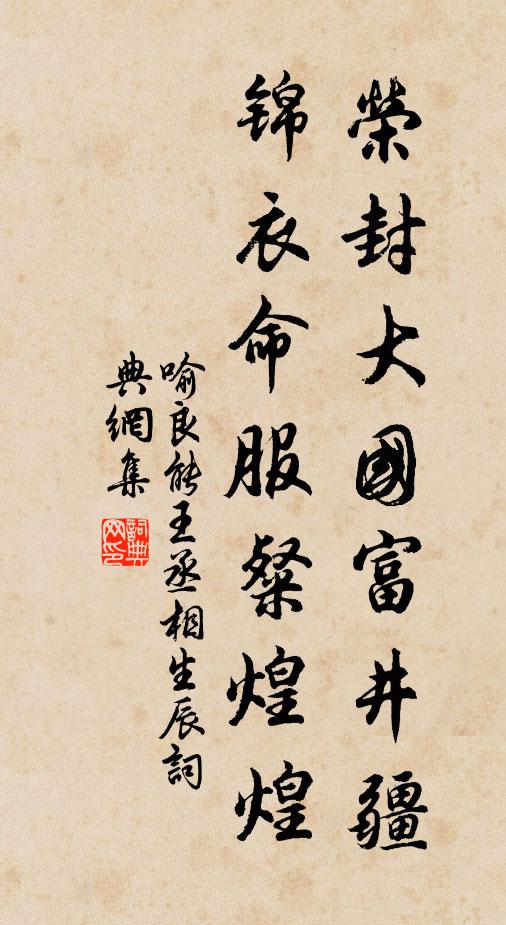 榮封大國富井疆
錦衣命服粲煌煌
喻良能王丞相生辰詞
典網集
詞典網印